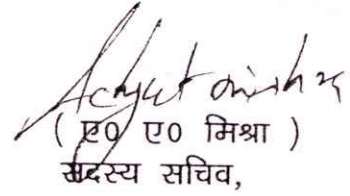 Achyut Mishra
( ए0 ए0 मिश्रा )
सदस्य सचिव,